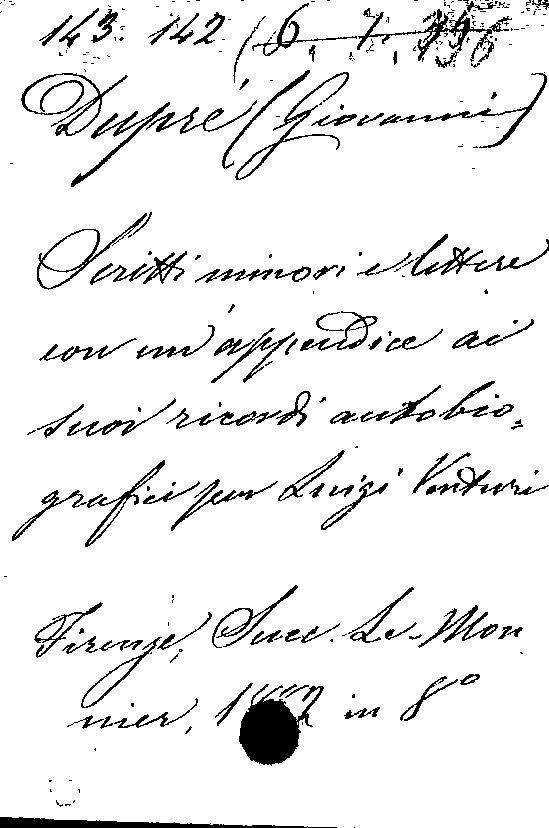 143. 142 (6. 7.
Dupré (Giovanni)
Scritti minori e lettere
con un'appendice ai
suoi ricordi autobio=
grafici per Luigi Venturi
Firenze, Succ. Le-Mon
nier, in 8º